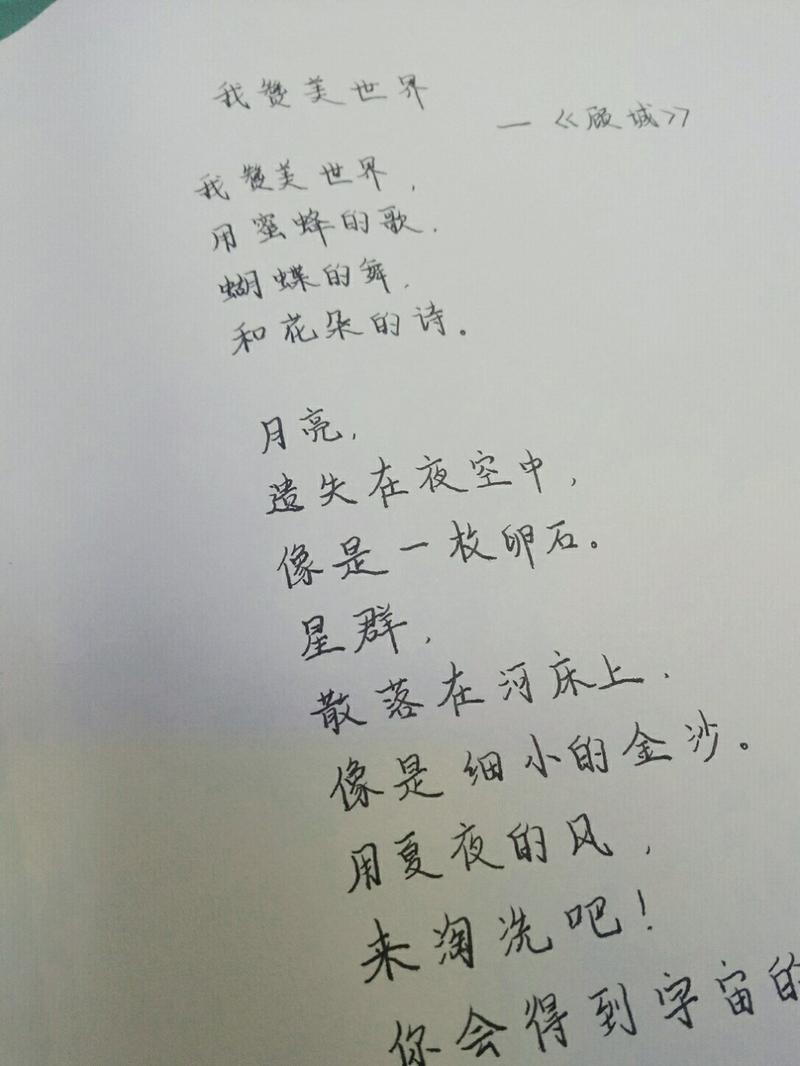 我赞美世界
—《顾城》
我赞美世界，
用蜜蜂的歌，
蝴蝶的舞，
和花朵的诗。
月亮，
遗失在夜空中，
像是一枚卵石。
星群，
散落在河床上，
像是细小的金沙。
用夏夜的风，
来淘洗吧！
你会得到宇宙的